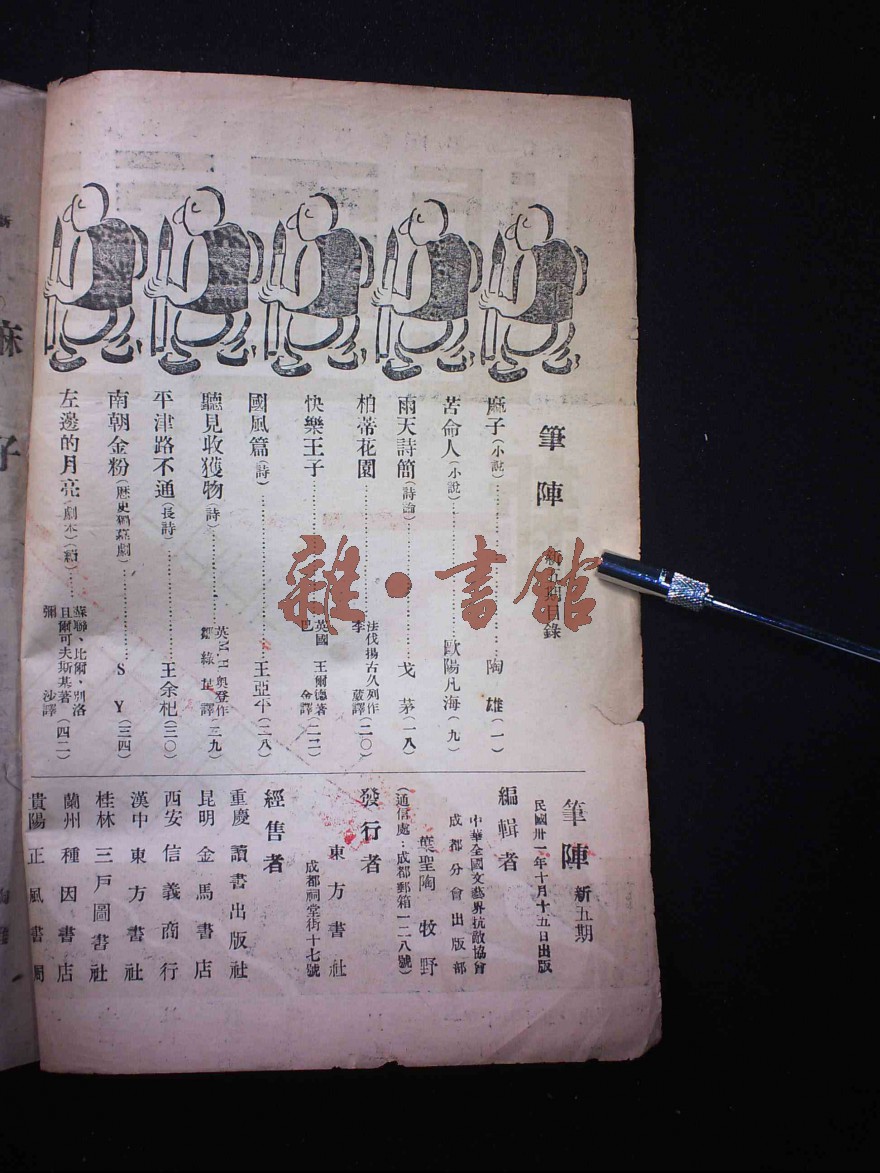 筆陣 新五期目錄
麻子(小說)……陶雄(一)
苦命人(小說)……歐陽凡海(九)
雨天詩簡(詩論)……戈茅(一八)
柏蒂花園……法伐揚古久列作
李葳譯(二〇)
快樂王子……英國 王爾德著
巴金譯(二二)
國風篇(詩)……王亞平(二八)
聽見收獲物(詩)……英M H奧登作
鄒綠芷譯(二九)
平津路不通(長詩)……王余杞(三〇)
南朝金粉(歷史獨幕劇)……S Y(三四)
左邊的月亮(劇本)(續)……蘇聯、比爾・別洛
且爾可夫斯基著
彌沙譯(四二)
筆陣 新五期
民國卅一年十月十五日出版
編輯者
中華全國文藝界抗敵協會
成都分會出版部
葉聖陶 牧野
(通信處:成都郵箱一二八號)
發行者
東方書社
成都祠堂街十七號
經售者
重慶 讀書出版社
昆明 金馬書店
西安 信義商行
漢中 東方書社
桂林 三戶圖書社
蘭州 種因書店
貴陽 正風書
雜・書館
新
麻
子